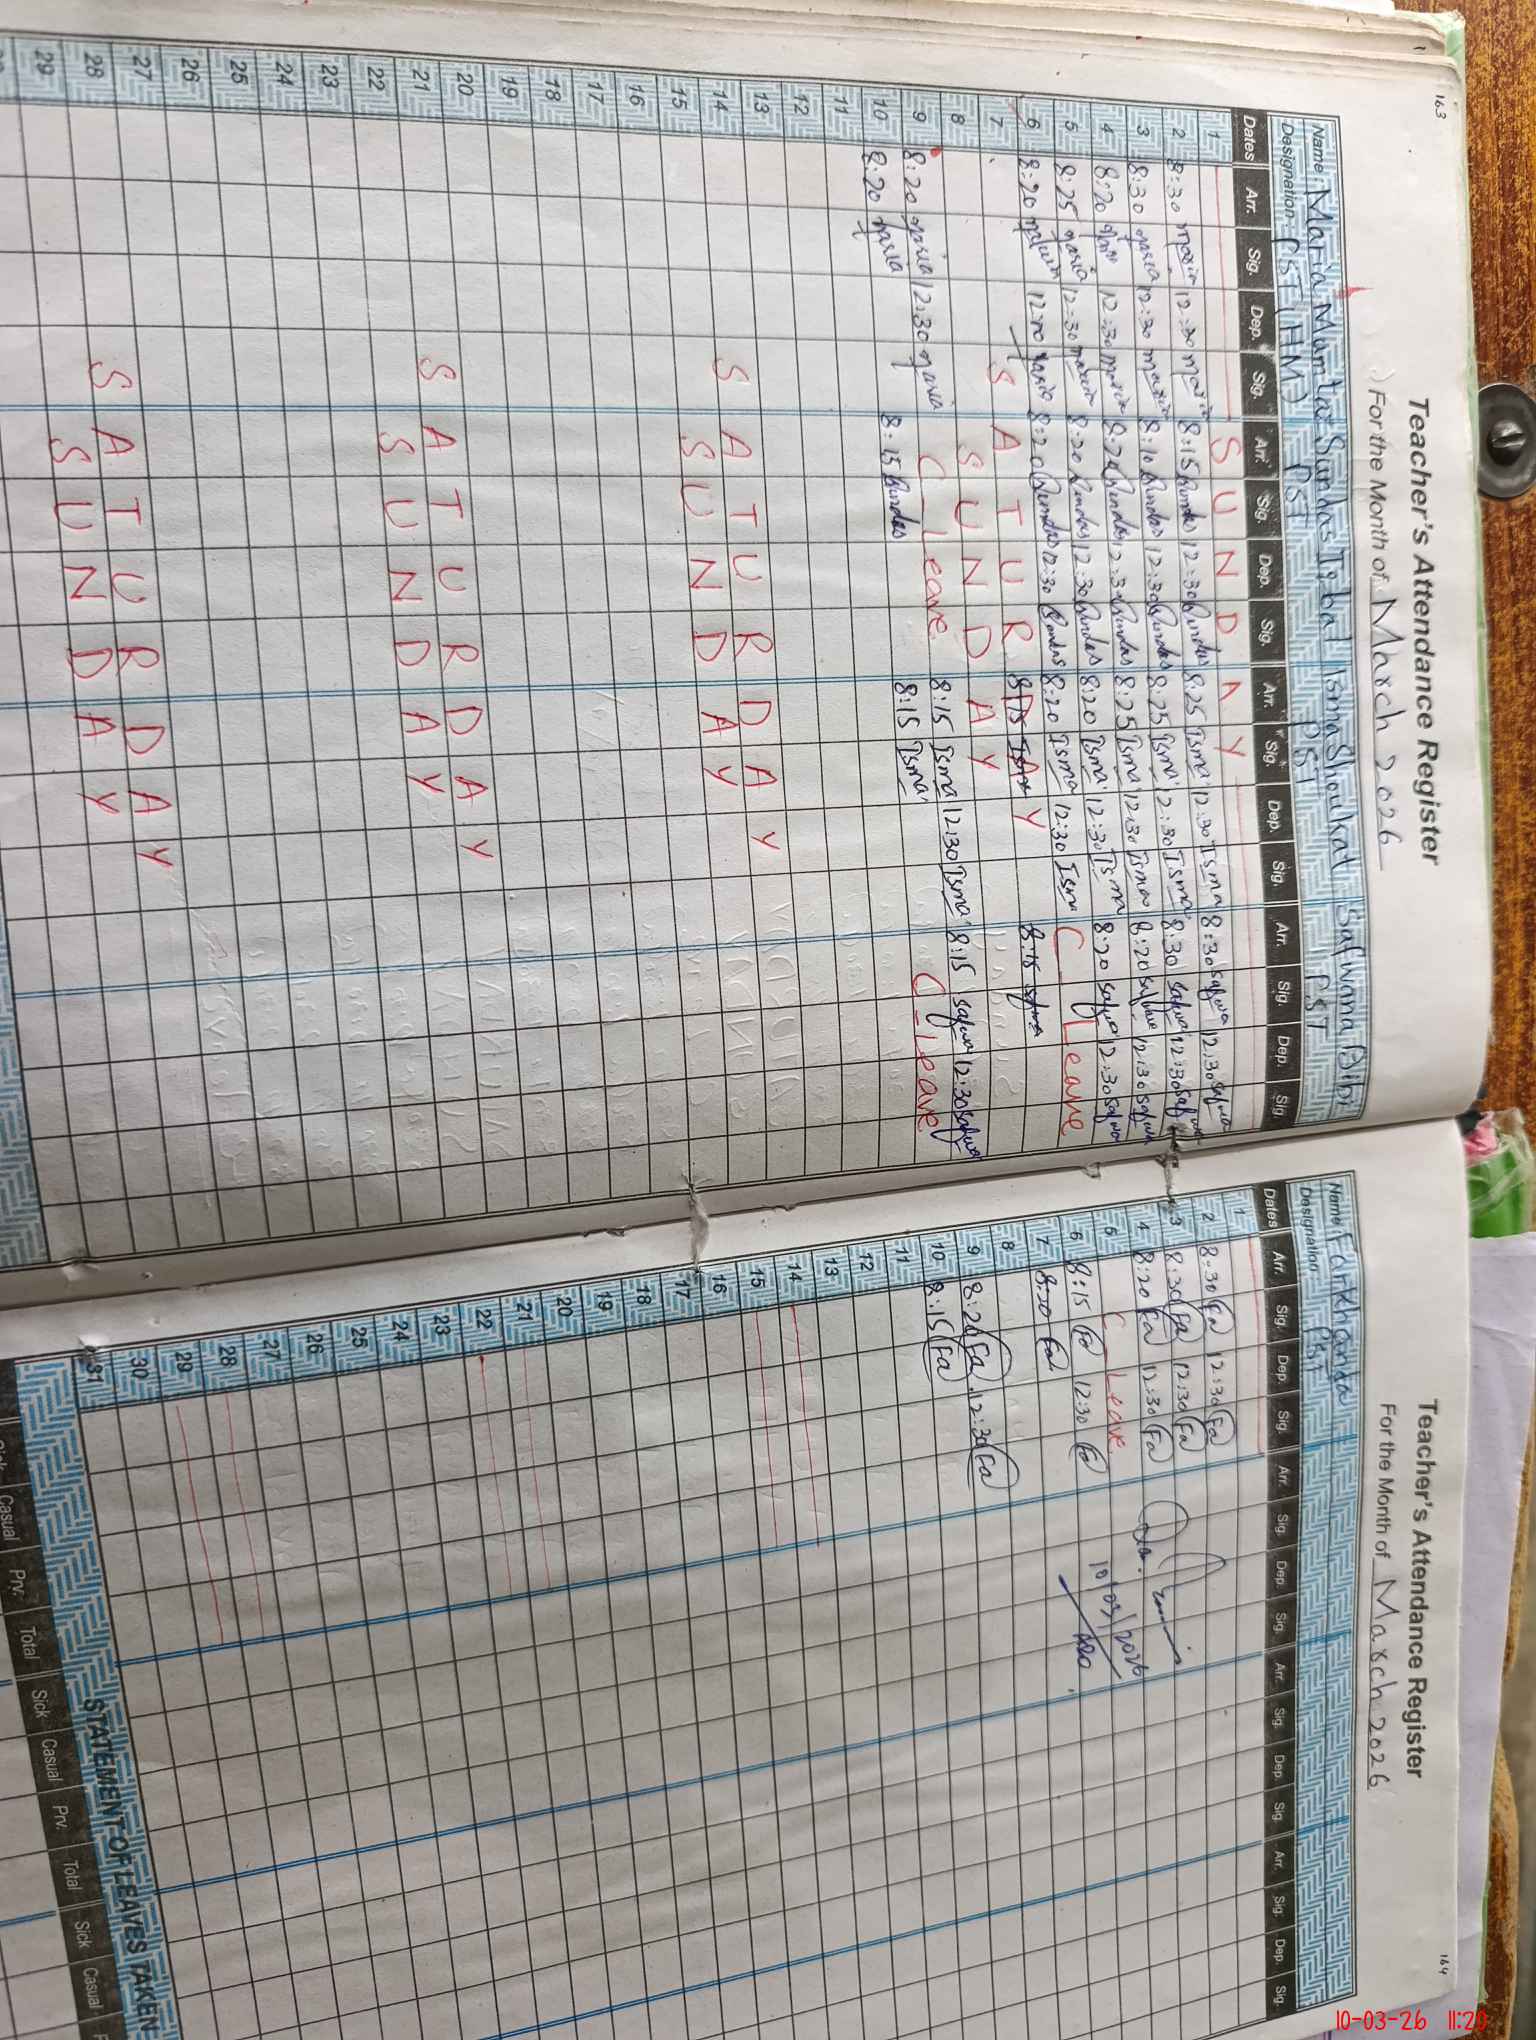 163
Teacher's Attendance Register
For the Month of March 2026
Name Maria Mumtaz Sundas Iqbal Isma Shoukat Safwana Bibi
Designation PST (HM) PST PST PST
Dates Arr. Sig. Dep. Sig. Arr. Sig. Dep. Sig. Arr. Sig. Dep. Sig. Arr. Sig. Dep. Sig.
1 SUNDAY
2 8:30 maria 12:30 maria 8:15 Sundas 12:30 Sundas 8:25 Isma 12:30 Isma 8:30 Safwa 12:30 Safwa
3 8:30 maria 12:30 maria 8:10 Sundas 12:30 Sundas 8:25 Isma 12:30 Isma 8:30 Safwa 12:30 Safwa
4 8:20 maria 12:30 maria 8:20 Sundas 12:30 Sundas 8:25 Isma 12:30 Isma 8:20 Safwa 12:30 Safwa
5 8:25 maria 12:30 maria 8:20 Sundas 12:30 Sundas 8:20 Isma 12:30 Isma 8:20 Safwa 12:30 Safwa
6 8:20 maria 12:00 maria 8:20 Sundas 12:30 Sundas 8:20 Isma 12:30 Isma C Leave
7 SATURDAY 8:15 Isma 8:15 Safwa
8 SUNDAY
9 8:20 maria 12:30 maria C Leave 8:15 Isma 12:30 Isma 8:15 Safwa 12:30 Safwa
10 8:20 maria 8:15 Sundas 8:15 Isma C-Leave
11
12
13
14 SATURDAY
15 SUNDAY
16
17
18
19
20
21 SATURDAY
22 SUNDAY
23
24
25
26
27
28 SATURDAY
29 SUNDAY
164
Teacher's Attendance Register
For the Month of March 2026
Name Farkhanda
Designation PST
Dates Arr. Sig. Dep. Sig. Arr. Sig. Dep. Sig. Arr. Sig. Dep. Sig. Arr. Sig. Dep. Sig.
1
2 8:30 Fa 12:30 Fa
3 8:30 Fa 12:30 Fa
4 8:20 Fa 12:30 Fa
5 C Leave
6 8:15 Fa 12:30 Fa
7 8:20 Fa
8
9 8:20 Fa 12:30 Fa
10 8:15 Fa
10/03/2026
11
12
13
14
15
16
17
18
19
20
21
22
23
24
25
26
27
28
29
30
31
STATEMENT OF LEAVES TAKEN
Casual Prv. Total Sick Casual Prv. Total Sick Casual
10-03-26 11:20